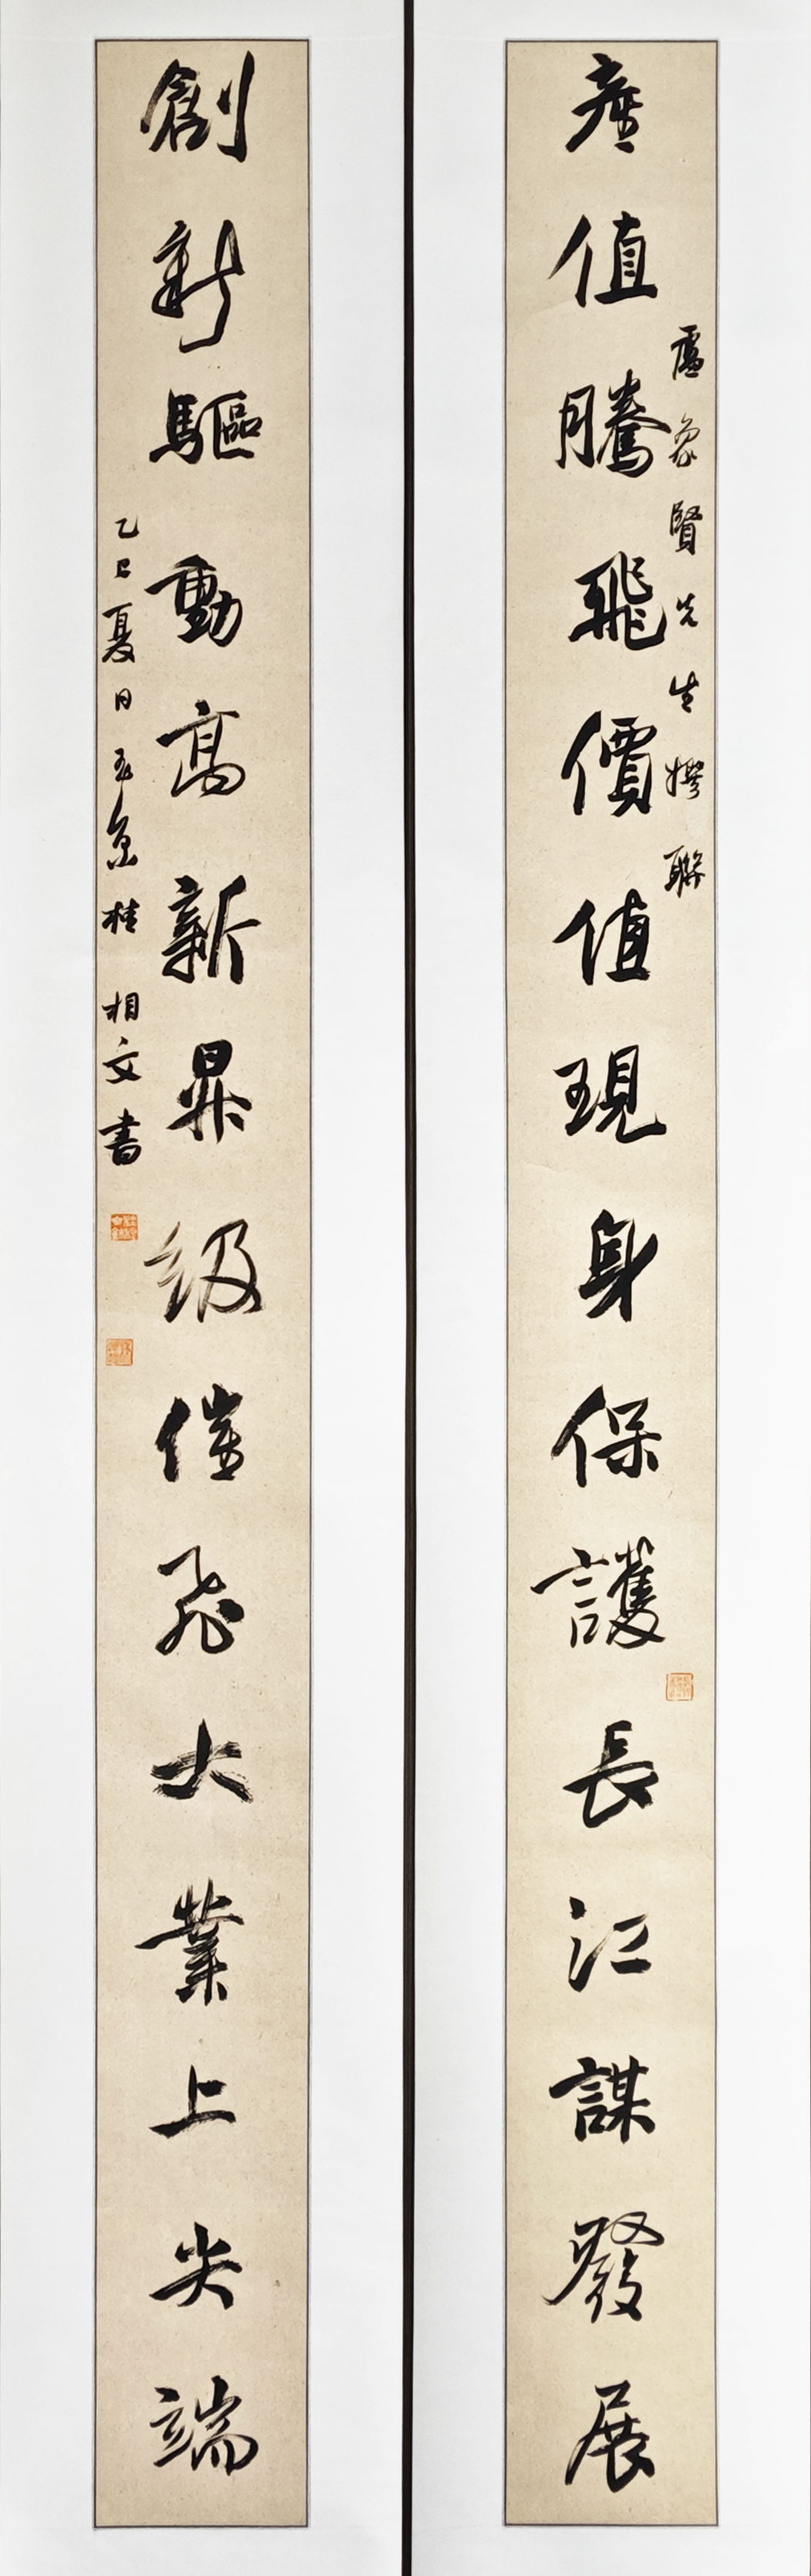 盧象賢先生撰聯
產值騰飛價值現身保護長江謀發展
創新驅動高新昇級催飛大業上尖端
乙巳夏日桂相文書